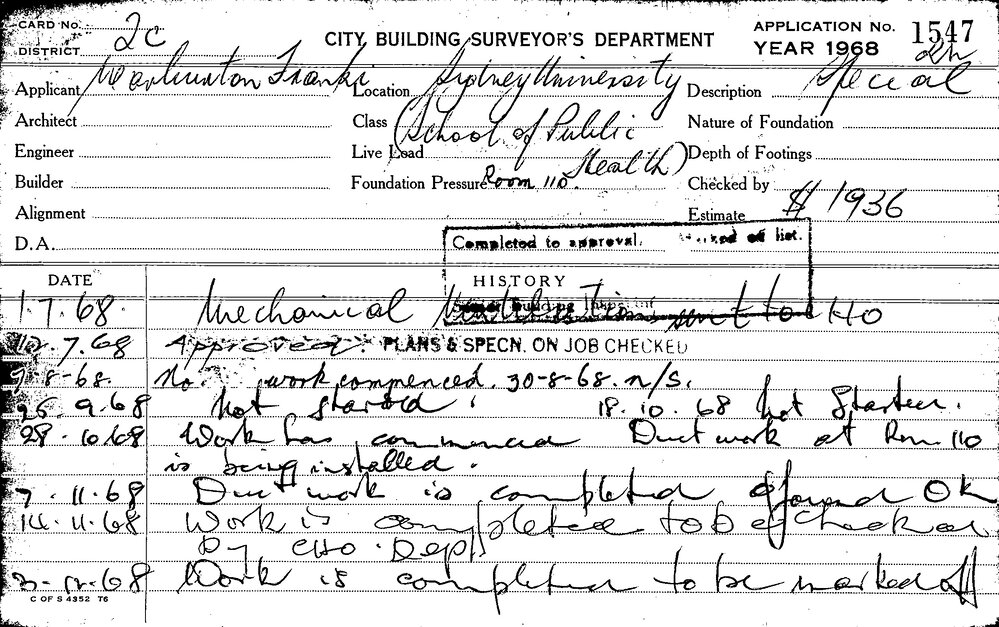 CARD No. 2C
DISTRICT
CITY BUILDING SURVEYOR'S DEPARTMENT
APPLICATION No. 1547
YEAR 1968
Applicant Warburton Franki Location Sydney University Description Special
Architect Class (School of Public Nature of Foundation
Engineer Live Load Health) Depth of Footings
Builder Foundation Pressure Room 110. Checked by
Alignment Estimate $1936
D.A. Completed to approval. Marked off list.
DATE HISTORY
1.7.68. Mechanical sent to CHO
7.68 Approved. PLANS & SPECN. ON JOB CHECKED
8-68. No. work commenced. 30-8-68. n/s.
26.9.68 Not started. 18.10.68 Not Started.
28.10.68 Work has commenced Duct work at Room 110
is being installed.
7.11.68 Duct work is completed & found OK
14.11.68 Work is completed to be checked
by CHO. Dept
3-12-68 Work is completed to be marked off
C OF S 4352 76